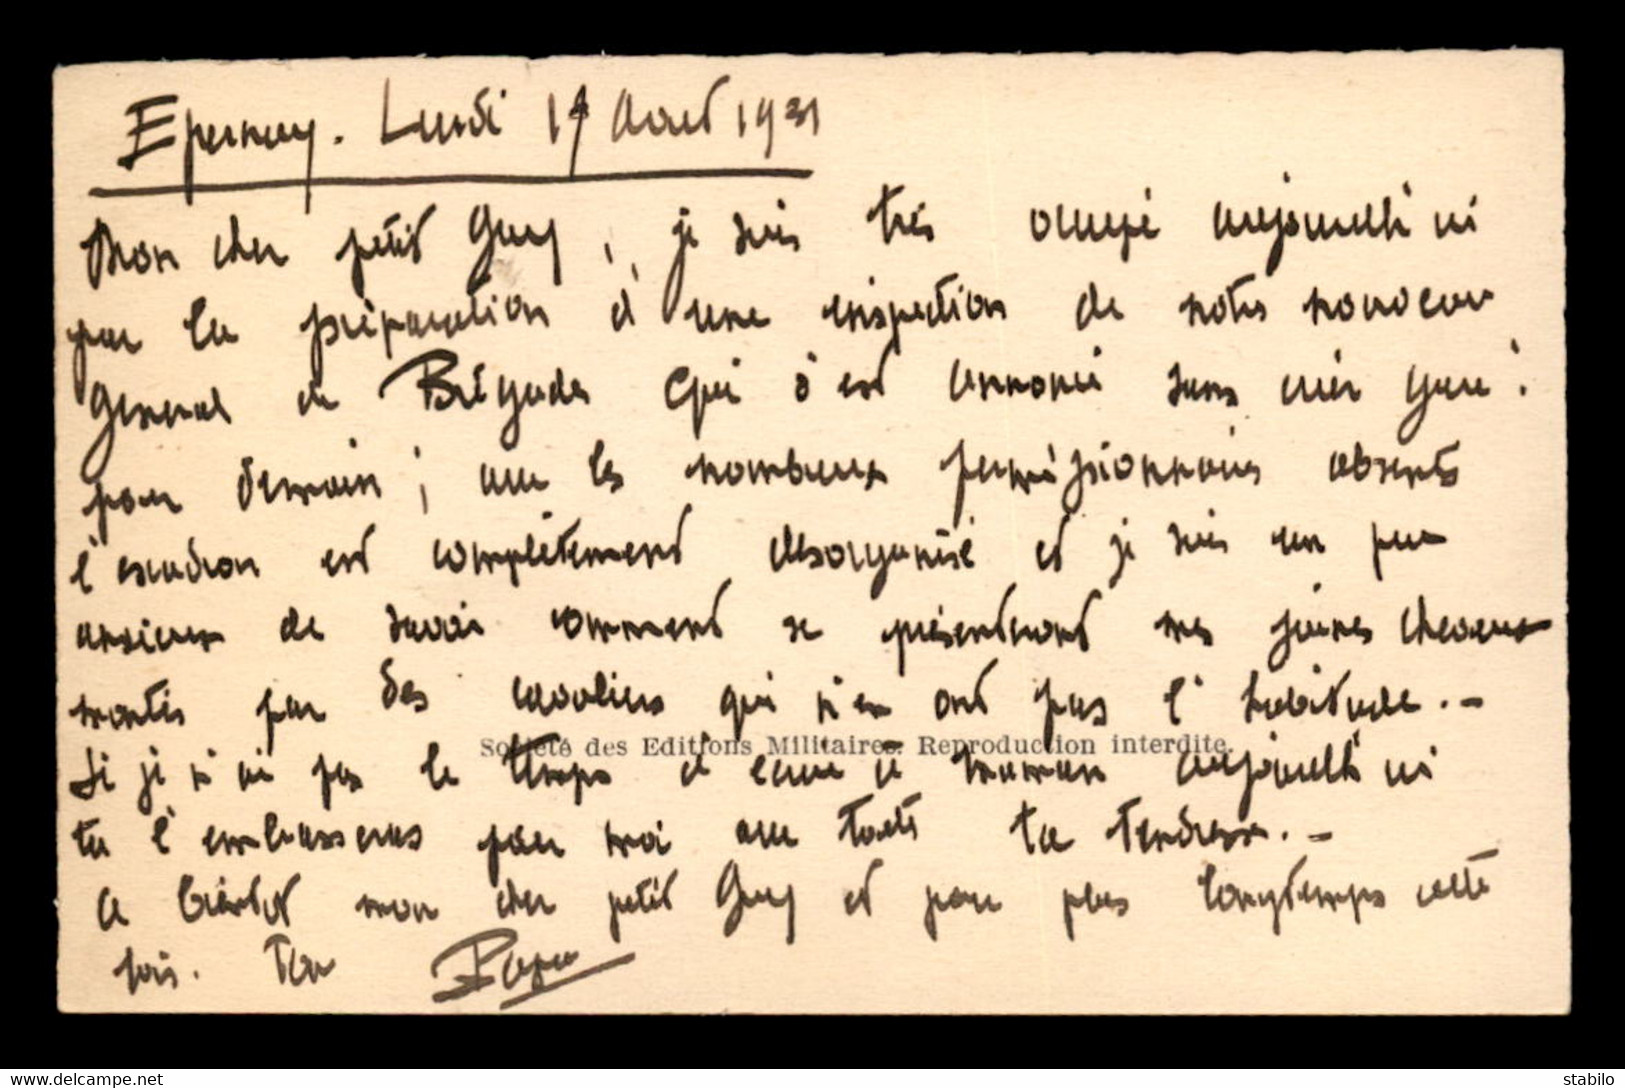 Epernay. Lundi 17 Aout 1931
Mon cher petit Guy, je suis très occupé aujourd'hui
par la préparation d'une inspection de notre nouveau
General de Brigade qui s'est annoncé sans crier gare !
pour demain ; avec les nombreux permissionnaires absents
l'escadron est complètement désorganisé et je suis un peu
anxieux de savoir comment se présenteront mes jeunes chevaux
montés par des cavaliers qui n'en ont pas l'habitude. -
Société des Editions Militaires. Reproduction interdite.
Si je n'ai pas le temps d'écrire à maman aujourd'hui
tu l'embrasseras pour moi avec toute ta tendresse. -
A bientot mon cher petit Guy et pour plus longtemps cette
fois. Ton Papa
www.delcampe.net
stabilo